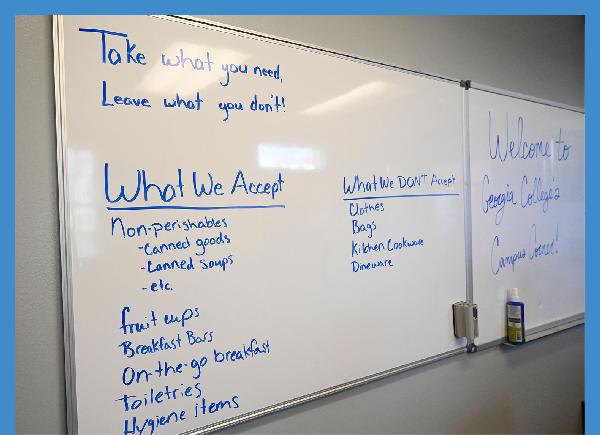 Take what you need,
Leave what you don't!
What We Accept
Non-perishables
-Canned goods
-Canned soups
-etc.
fruit cups
Breakfast Bars
On-the-go breakfast
Toiletries
Hygiene items
What We DON'T Accept
Clothes
Bags
Kitchen Cookware
Dineware
Welcome to
Georgia College's
Campus Corner!